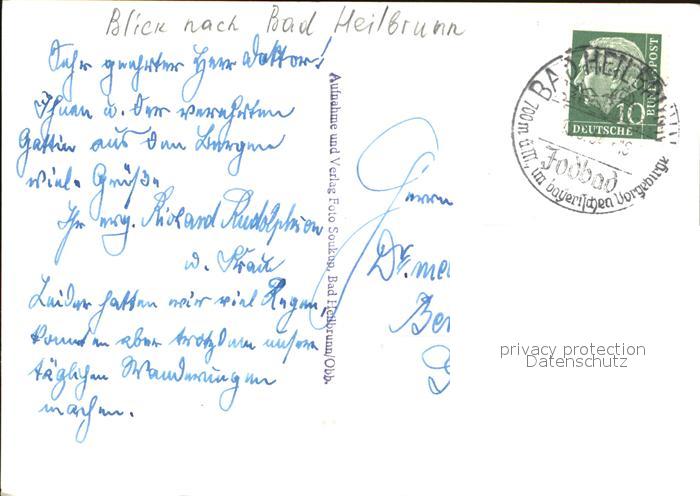 Blick nach Bad Heilbrunn
Sehr geehrter Herr Doktor!
Ihnen u. der verehrten
Gattin aus den Bergen
viele Grüße
Ihr erg. Richard Rudolphson
u. Frau
Leider hatten wir viel Regen,
konnten aber trotzdem unsere
täglichen Wanderungen
machen.
Aufnahme und Verlag Foto Soukup, Bad Heilbrunn/Obb.
Herrn
Dr. me
Ber
D
BAD HEILBRUNN
700 m ü.M., im bayerischen Vorgebirge
Jodbad
10
DEUTSCHE
BUNDESPOST
privacy protection
Datenschutz